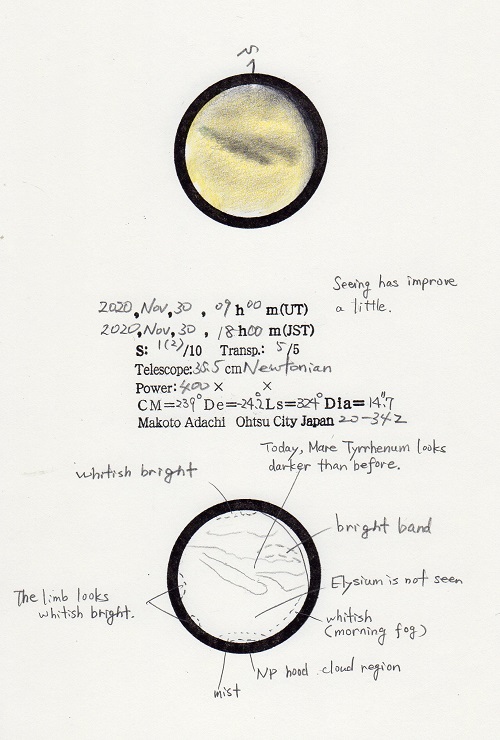 S
Seeing has improve
a little.
2020, Nov, 30 , 09 h 00 m(UT)
2020, Nov, 30 , 18 h 00 m(JST)
S: 1(2)/10 Transp.: 5/5
Telescope: 35.5 cm Newtonian
Power: 400 × ×
CM=239° De=-24.2° Ls=324° Dia=14."7
Makoto Adachi Ohtsu City Japan 20-342
Today, Mare Tyrrhenum looks
darker than before.
whitish bright
bright band
Elysium is not seen
The limb looks
whitish bright.
whitish
(morning fog)
NP hood cloud region
mist